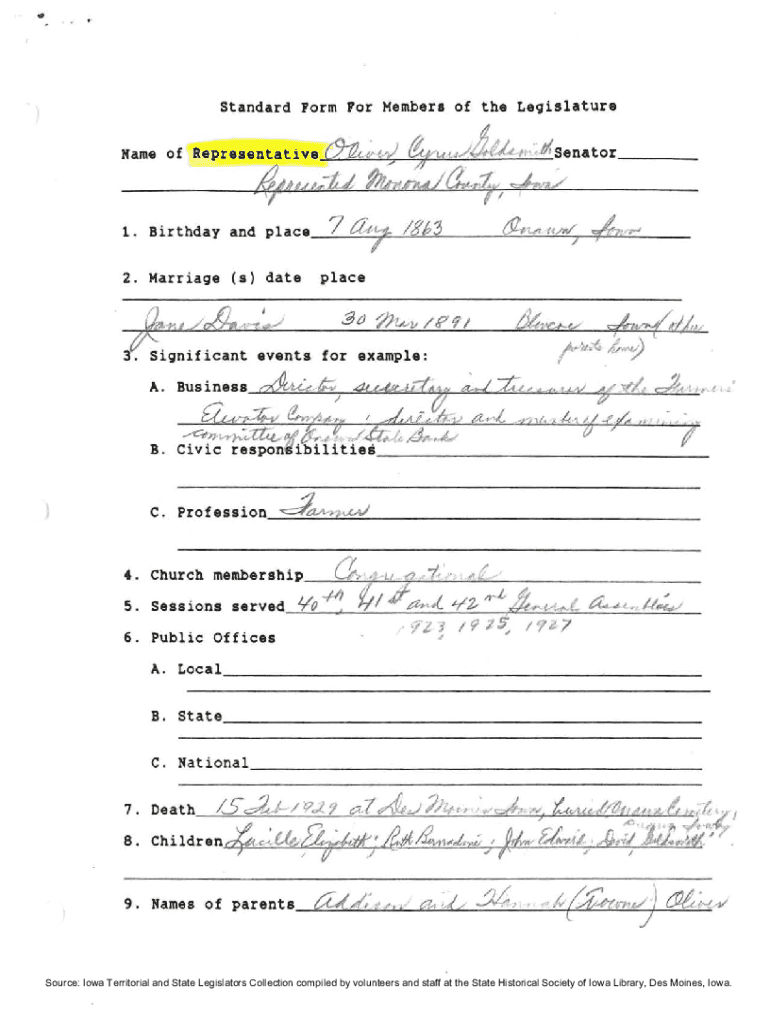 Standard Form For Members of the Legislature
Name of Representative Oliver, Cyrus Goldsmith Senator
Represented Monona County, Iowa
1. Birthday and place 7 Aug 1863 Onawa, Iowa
2. Marriage (s) date place
Jane Davis 30 Mar 1891 Blencoe Iowa (at her
3. Significant events for example: private home)
A. Business Director, secretary and treasurer of the Farmers'
Elevator Company; director and member of examining
committee of Onawa State Bank
B. Civic responsibilities
C. Profession Farmer
4. Church membership Congregational
5. Sessions served 40th, 41st and 42nd General Assemblies
1923, 1925, 1927
6. Public Offices
A. Local
B. State
C. National
7. Death 15 Feb 1929 at Des Moines Iowa, buried Onawa Cemetery,
Onawa, Iowa
8. Children Lucille Elizabeth; Ruth Bernadine; John Edward; David Goldsmith
9. Names of parents Addison and Hannah ( ) Oliver
Source: Iowa Territorial and State Legislators Collection compiled by volunteers and staff at the State Historical Society of Iowa Library, Des Moines, Iowa.